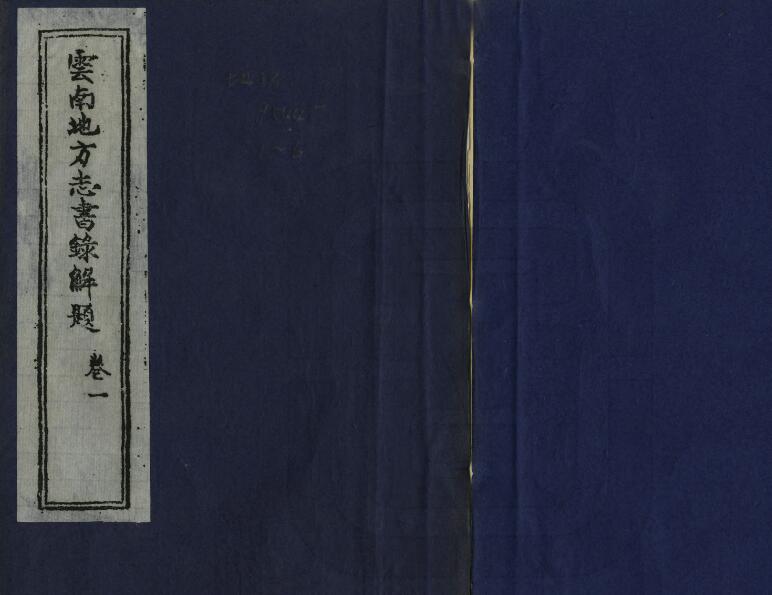 雲南地方志書錄解題
卷一